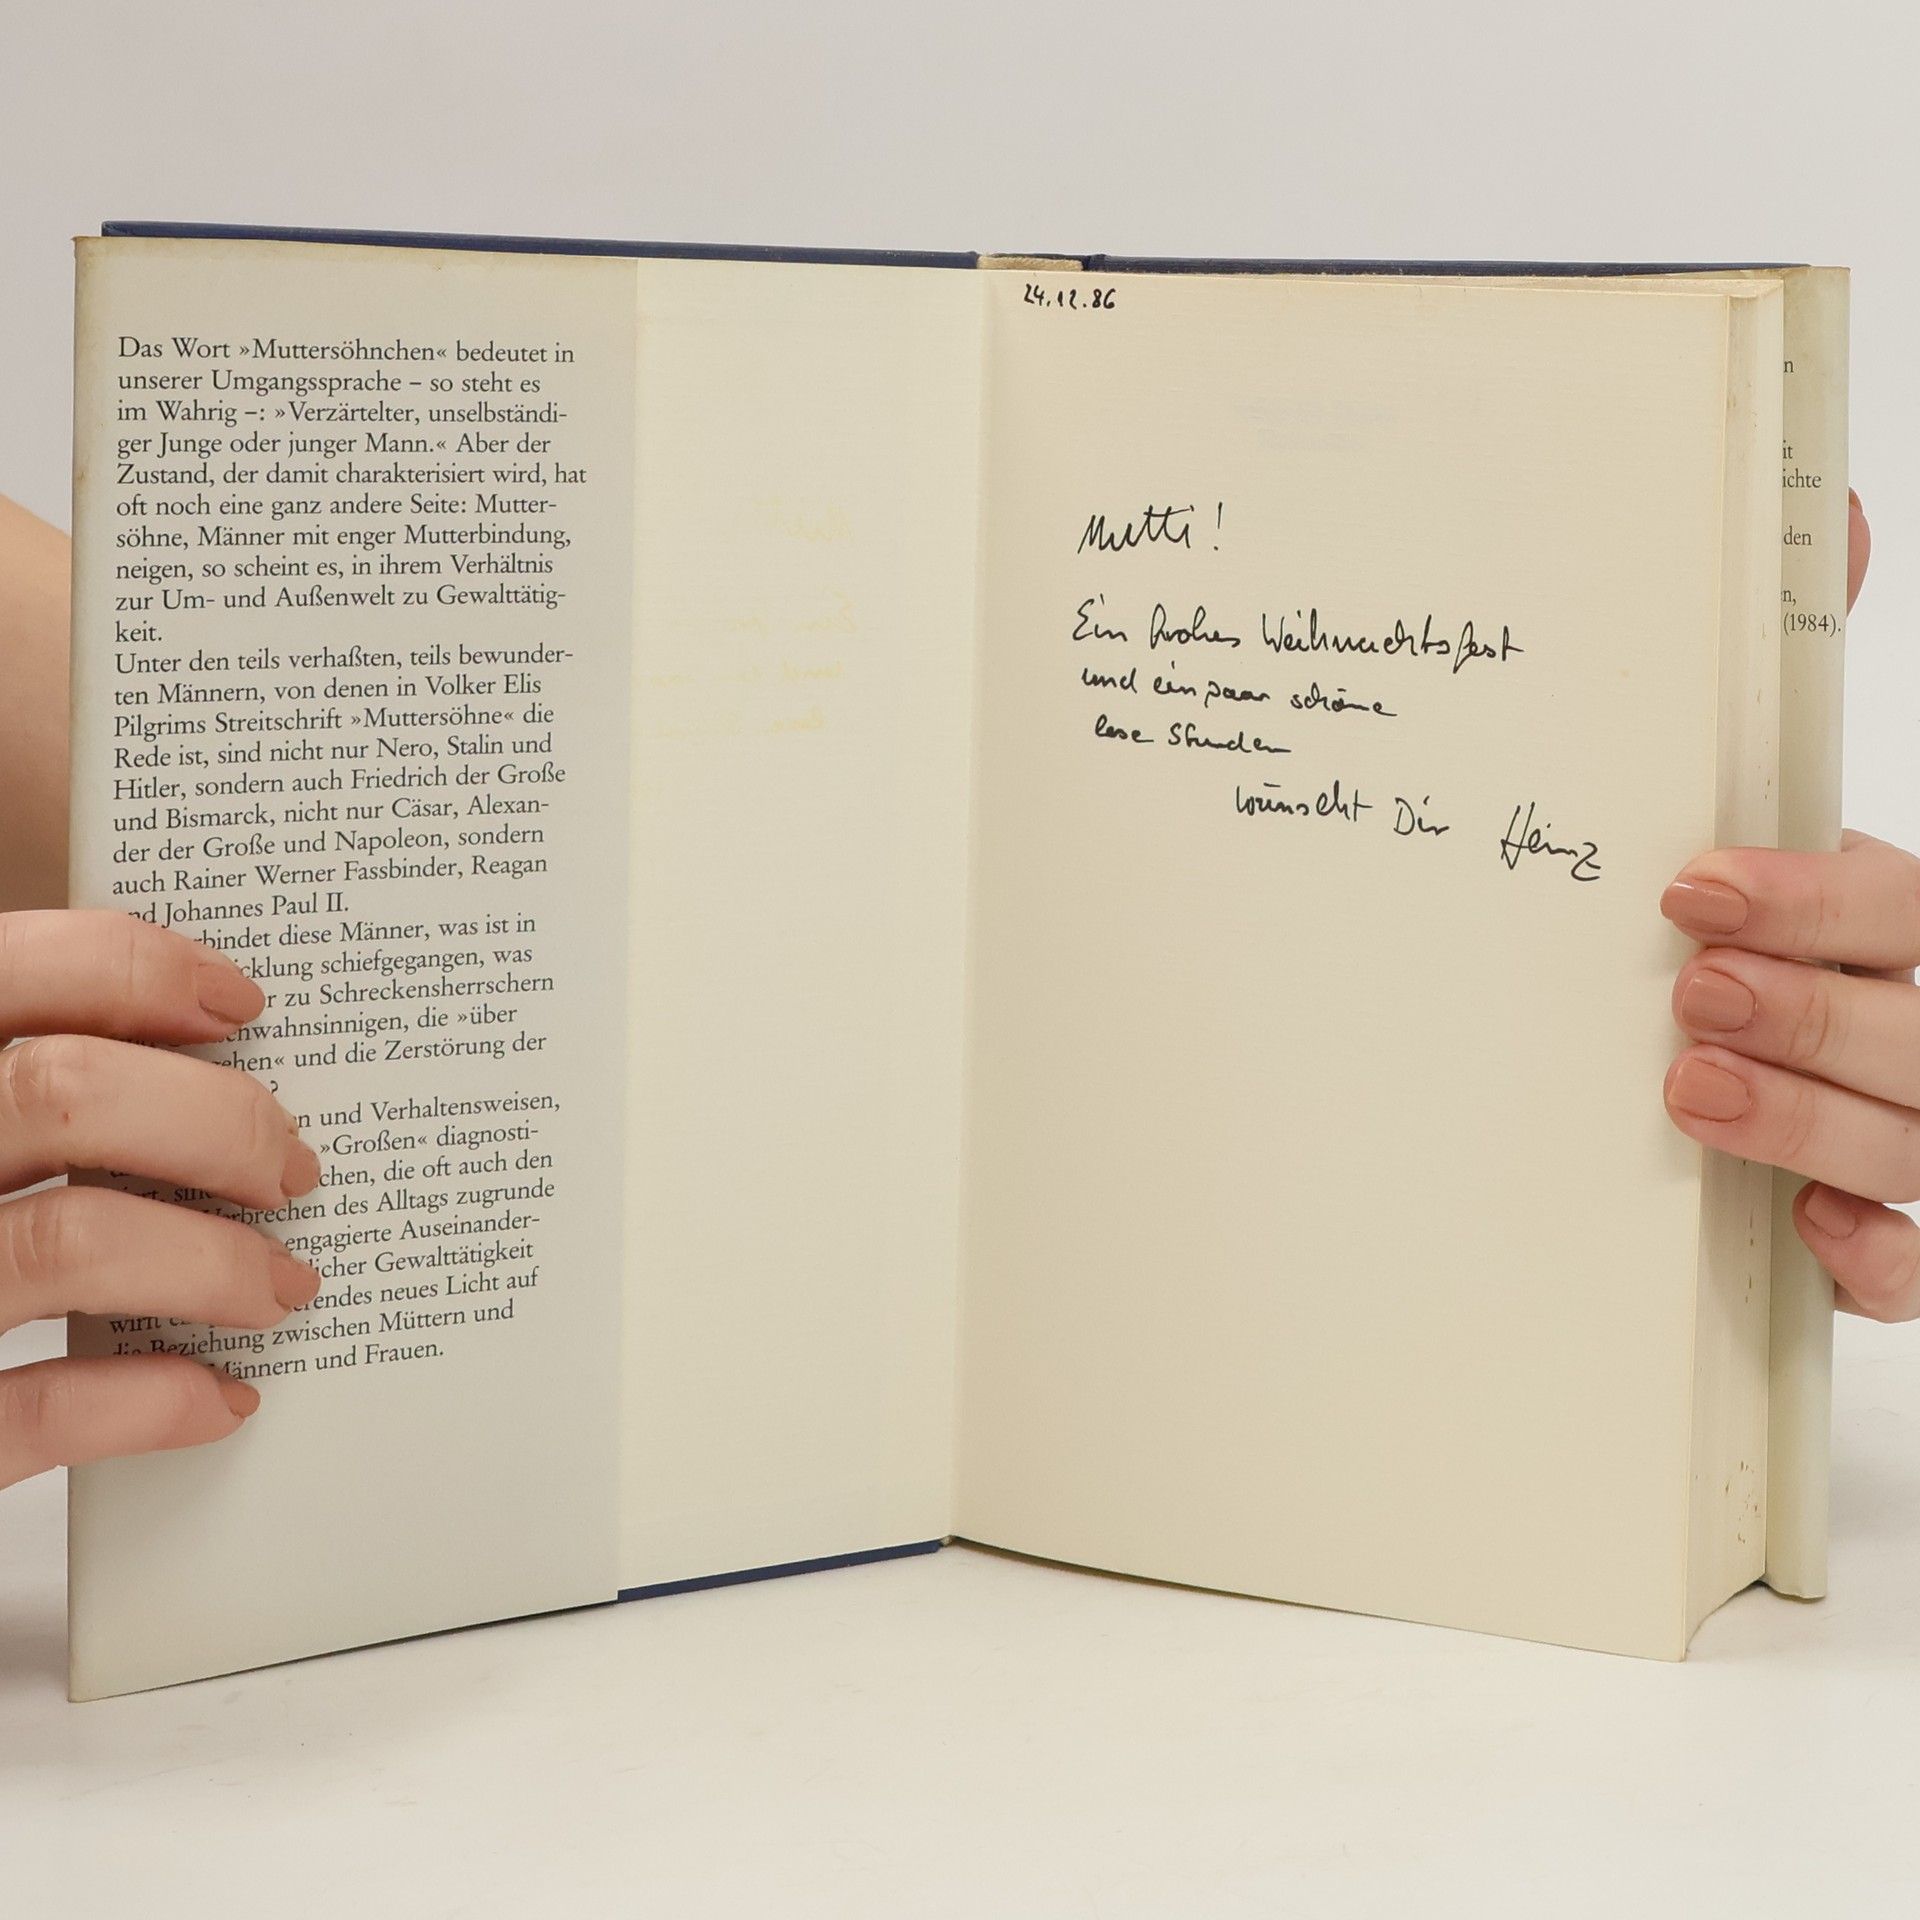 Das Wort »Muttersöhnchen« bedeutet in
unserer Umgangssprache – so steht es
im Wahrig –: »Verzärtelter, unselbständi-
ger Junge oder junger Mann.« Aber der
Zustand, der damit charakterisiert wird, hat
oft noch eine ganz andere Seite: Mutter-
söhne, Männer mit enger Mutterbindung,
neigen, so scheint es, in ihrem Verhältnis
zur Um- und Außenwelt zu Gewalttätig-
keit.
Unter den teils verhaßten, teils bewunder-
ten Männern, von denen in Volker Elis
Pilgrims Streitschrift »Muttersöhne« die
Rede ist, sind nicht nur Nero, Stalin und
Hitler, sondern auch Friedrich der Große
und Bismarck, nicht nur Cäsar, Alexan-
der der Große und Napoleon, sondern
auch Rainer Werner Fassbinder, Reagan
Johannes Paul II.
diese Männer, was ist in
schiefgegangen, was
zu Schreckensherrschern
die »über
und die Zerstörung der
?
und Verhaltensweisen,
»Großen« diagnosti-
die oft auch den
des Alltags zugrunde
engagierte Auseinander-
Gewalttätigkeit
neues Licht auf
Beziehung zwischen Müttern und
Männern und Frauen.
24.12.86
Mutti!
Ein frohes Weihnachtsfest
und ein paar schöne
lese Stunden
wünscht Dir Heinz
den
(1984).